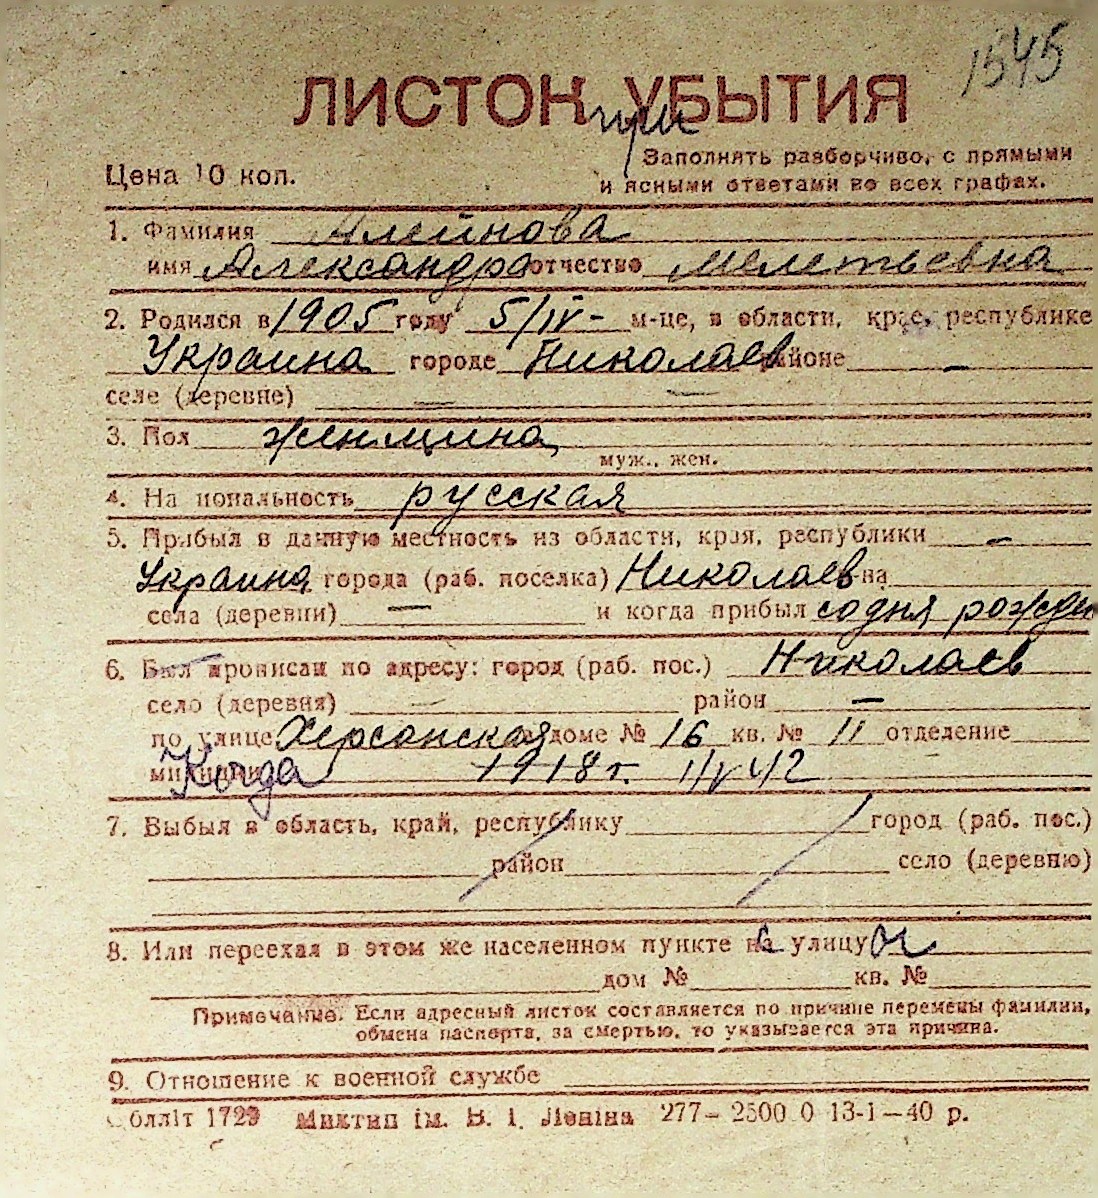 1545
ЛИСТОК УБЫТИЯ
при
Цена 10 коп.
Заполнять разборчиво, с прямыми
и ясными ответами во всех графах.
1. Фамилия Алейнова
имя Александра отчество Мелетьевна
2. Родился в 1905 году 5/IV - м-це, в области, крае, республике
Украина городе Николаев районе -
селе (деревне) — —
3. Пол женщина
муж., жен.
4. Национальность русская
5. Прибыл в данную местность из области, края, республики -
Украина города (раб. поселка) Николаев-на
села (деревни) — и когда прибыл со дня рожден
6. Был прописан по адресу: город (раб. пос.) Николаев
село (деревня) — район —
по улице Херсонская доме № 16 кв. № 11 отделение
милиции Когда 1918 г. 1/V 42
7. Выбыл в область, край, республику город (раб. пос.)
район село (деревню)
8. Или переехал в этом же населенном пункте на улицу
дом № кв. №
Примечание. Если адресный листок составляется по причине перемены фамилии,
обмена паспорта, за смертью, то указывается эта причина.
9. Отношение к военной службе
Облліт 1729 Миктип ім. В. І. Леніна 277—2500 0 13-1—40 р.